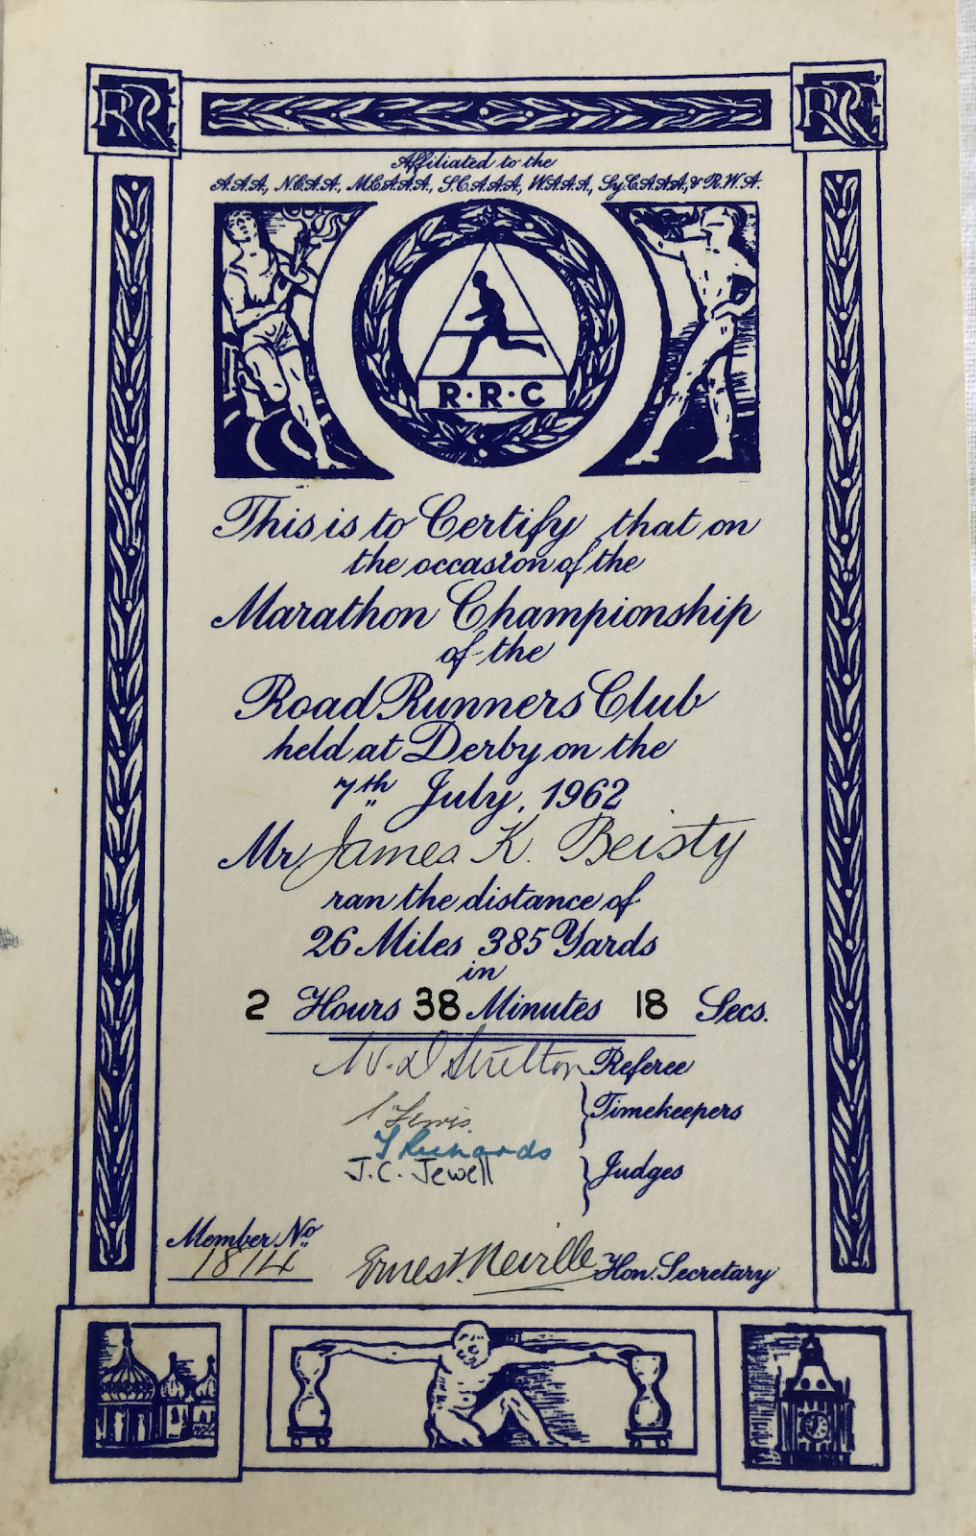 RRC
RRC
Affiliated to the
A.A.A, N.C.A.A, M.C.A.A.A, S.C.A.A.A, W.A.A.A, Sy.C.A.A.A, & R.W.A.
R·R·C
This is to Certify that on
the occasion of the
Marathon Championship
of the
Road Runners Club
held at Derby on the
7th July, 1962
Mr James K. Beisty
ran the distance of
26 Miles 385 Yards
in
2 Hours 38 Minutes 18 Secs.
Referee
Lewis Timekeepers
Richards
J.C. Jewell Judges
Member No
1814
Ernest Neville Hon. Secretary